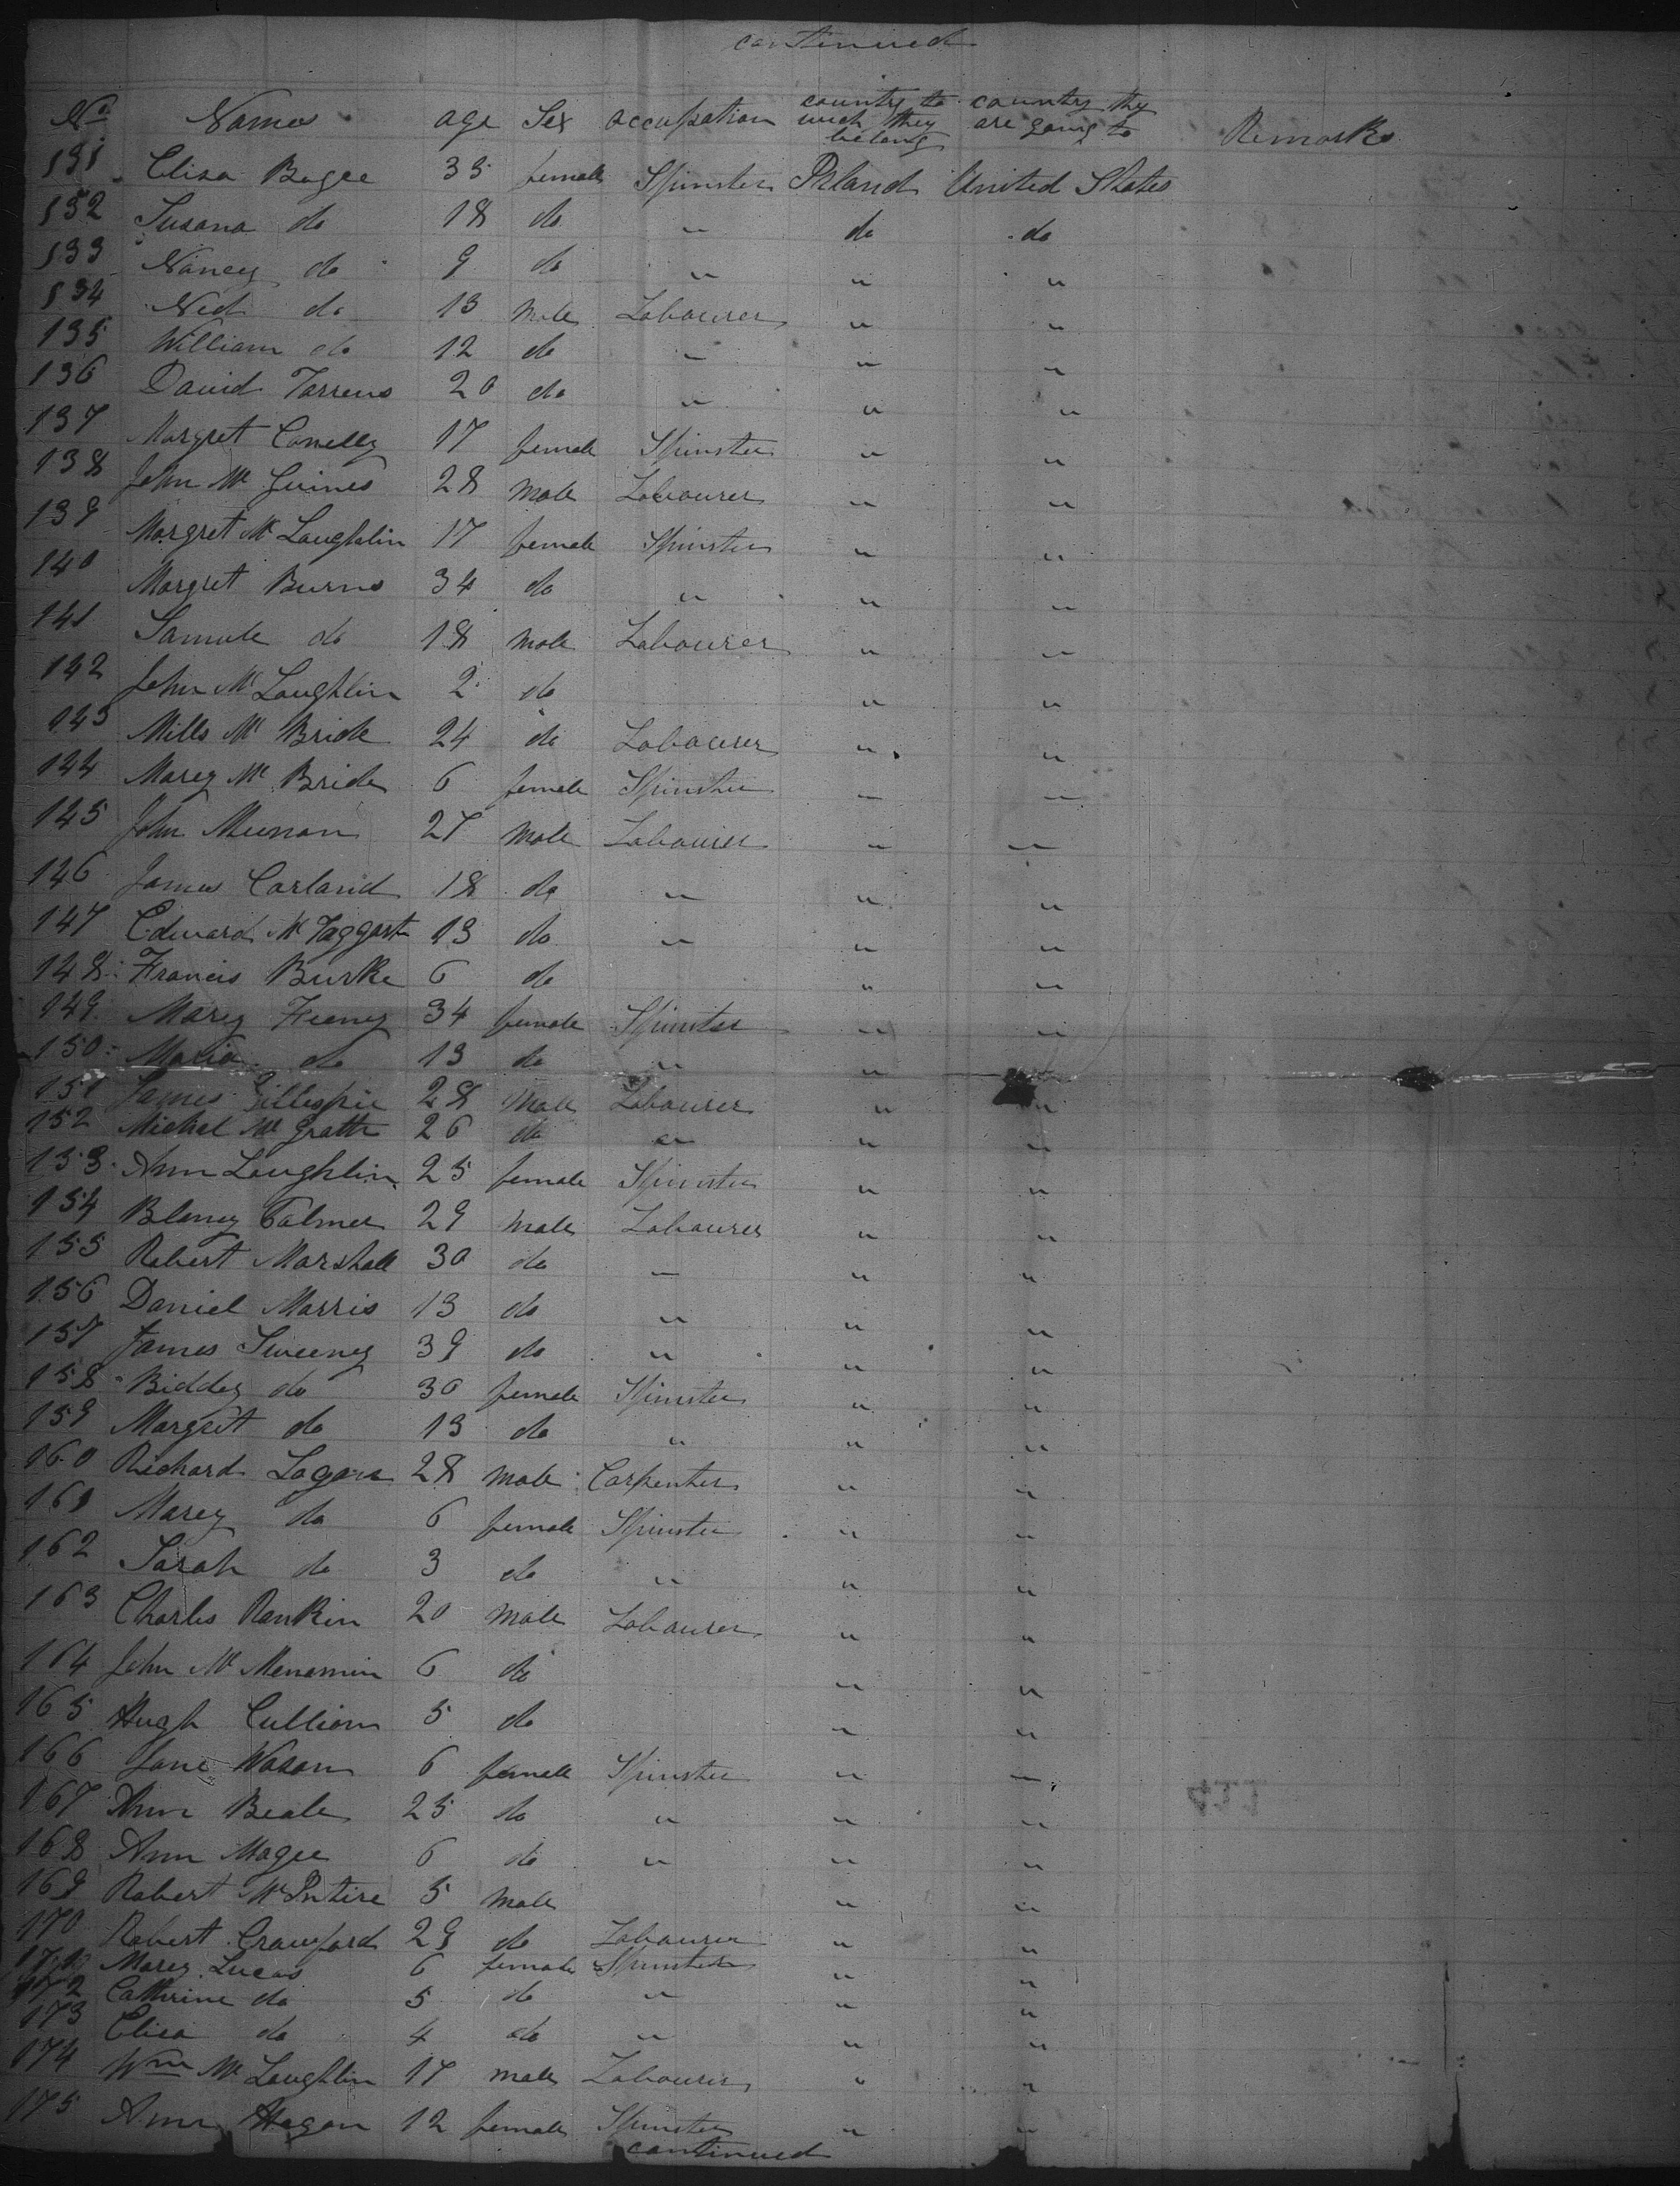 continued
No Names age Sex occupation country to wich they belong country they are going to Remarks
131 Elisa Bogee 35 female Spinster Irland United States
132 Susana do 18 do " do do
133 Nancy do 9 do " " "
134 Ned do 13 male Labourer " "
135 William do 12 do " " "
136 David Torrens 20 do " " "
137 Margret Conelly 17 female Spinster " "
138 John Mc Guines 28 male Labourer " "
139 Margret Mc Laughlin 17 female Spinster " "
140 Margret Burns 34 do " " "
141 Samule do 18 male Labourer " "
142 John Mc Loughlin 2 do " "
143 Mills Mc Bride 24 do Labourer " "
144 Marey Mc Bride 6 female Spinster " "
145 John 27 male Labourer " "
146 James Carland 18 do " " "
147 Edward Mc Taggart 13 do " " "
148 Francis Burke 6 do " "
149 Marey Feeney 34 female Spinster " "
150 Maria do 13 do " " "
151 James Gillespie 28 male Labourer " "
152 Michel Mc Grath 26 do " " "
153 Ann Loughlin 25 female Spinster " "
154 Blaney 29 male Labourer " "
155 Robert Marshall 30 do " " "
156 Daniel Morris 13 do " " "
157 James Sweeney 39 do " " "
158 Biddey do 30 female Spinster " "
159 Margret do 13 do " " "
160 Richard Logan 28 male Carpenter " "
161 Marey do 6 female Spinster " "
162 Sarah do 3 do " " "
163 Charles Rankin 20 male Labourer " "
164 John Mc Menamin 6 do " "
165 Hugh Cullion 5 do " "
166 Jane Wason 6 female Spinster " "
167 Ann Beale 25 do " " "
168 Ann Magee 6 do " " "
169 Robert Mc Intire 5 male " "
170 Robert Crawford 29 do Labourer " "
171 Marey Lucas 6 female Spinster " "
172 Cathrine do 5 do " " "
173 Elisa do 4 do " " "
174 Wm Mc Loughlin 17 male Labourer " "
175 Ann Hagan 12 female Spinster " "
continued